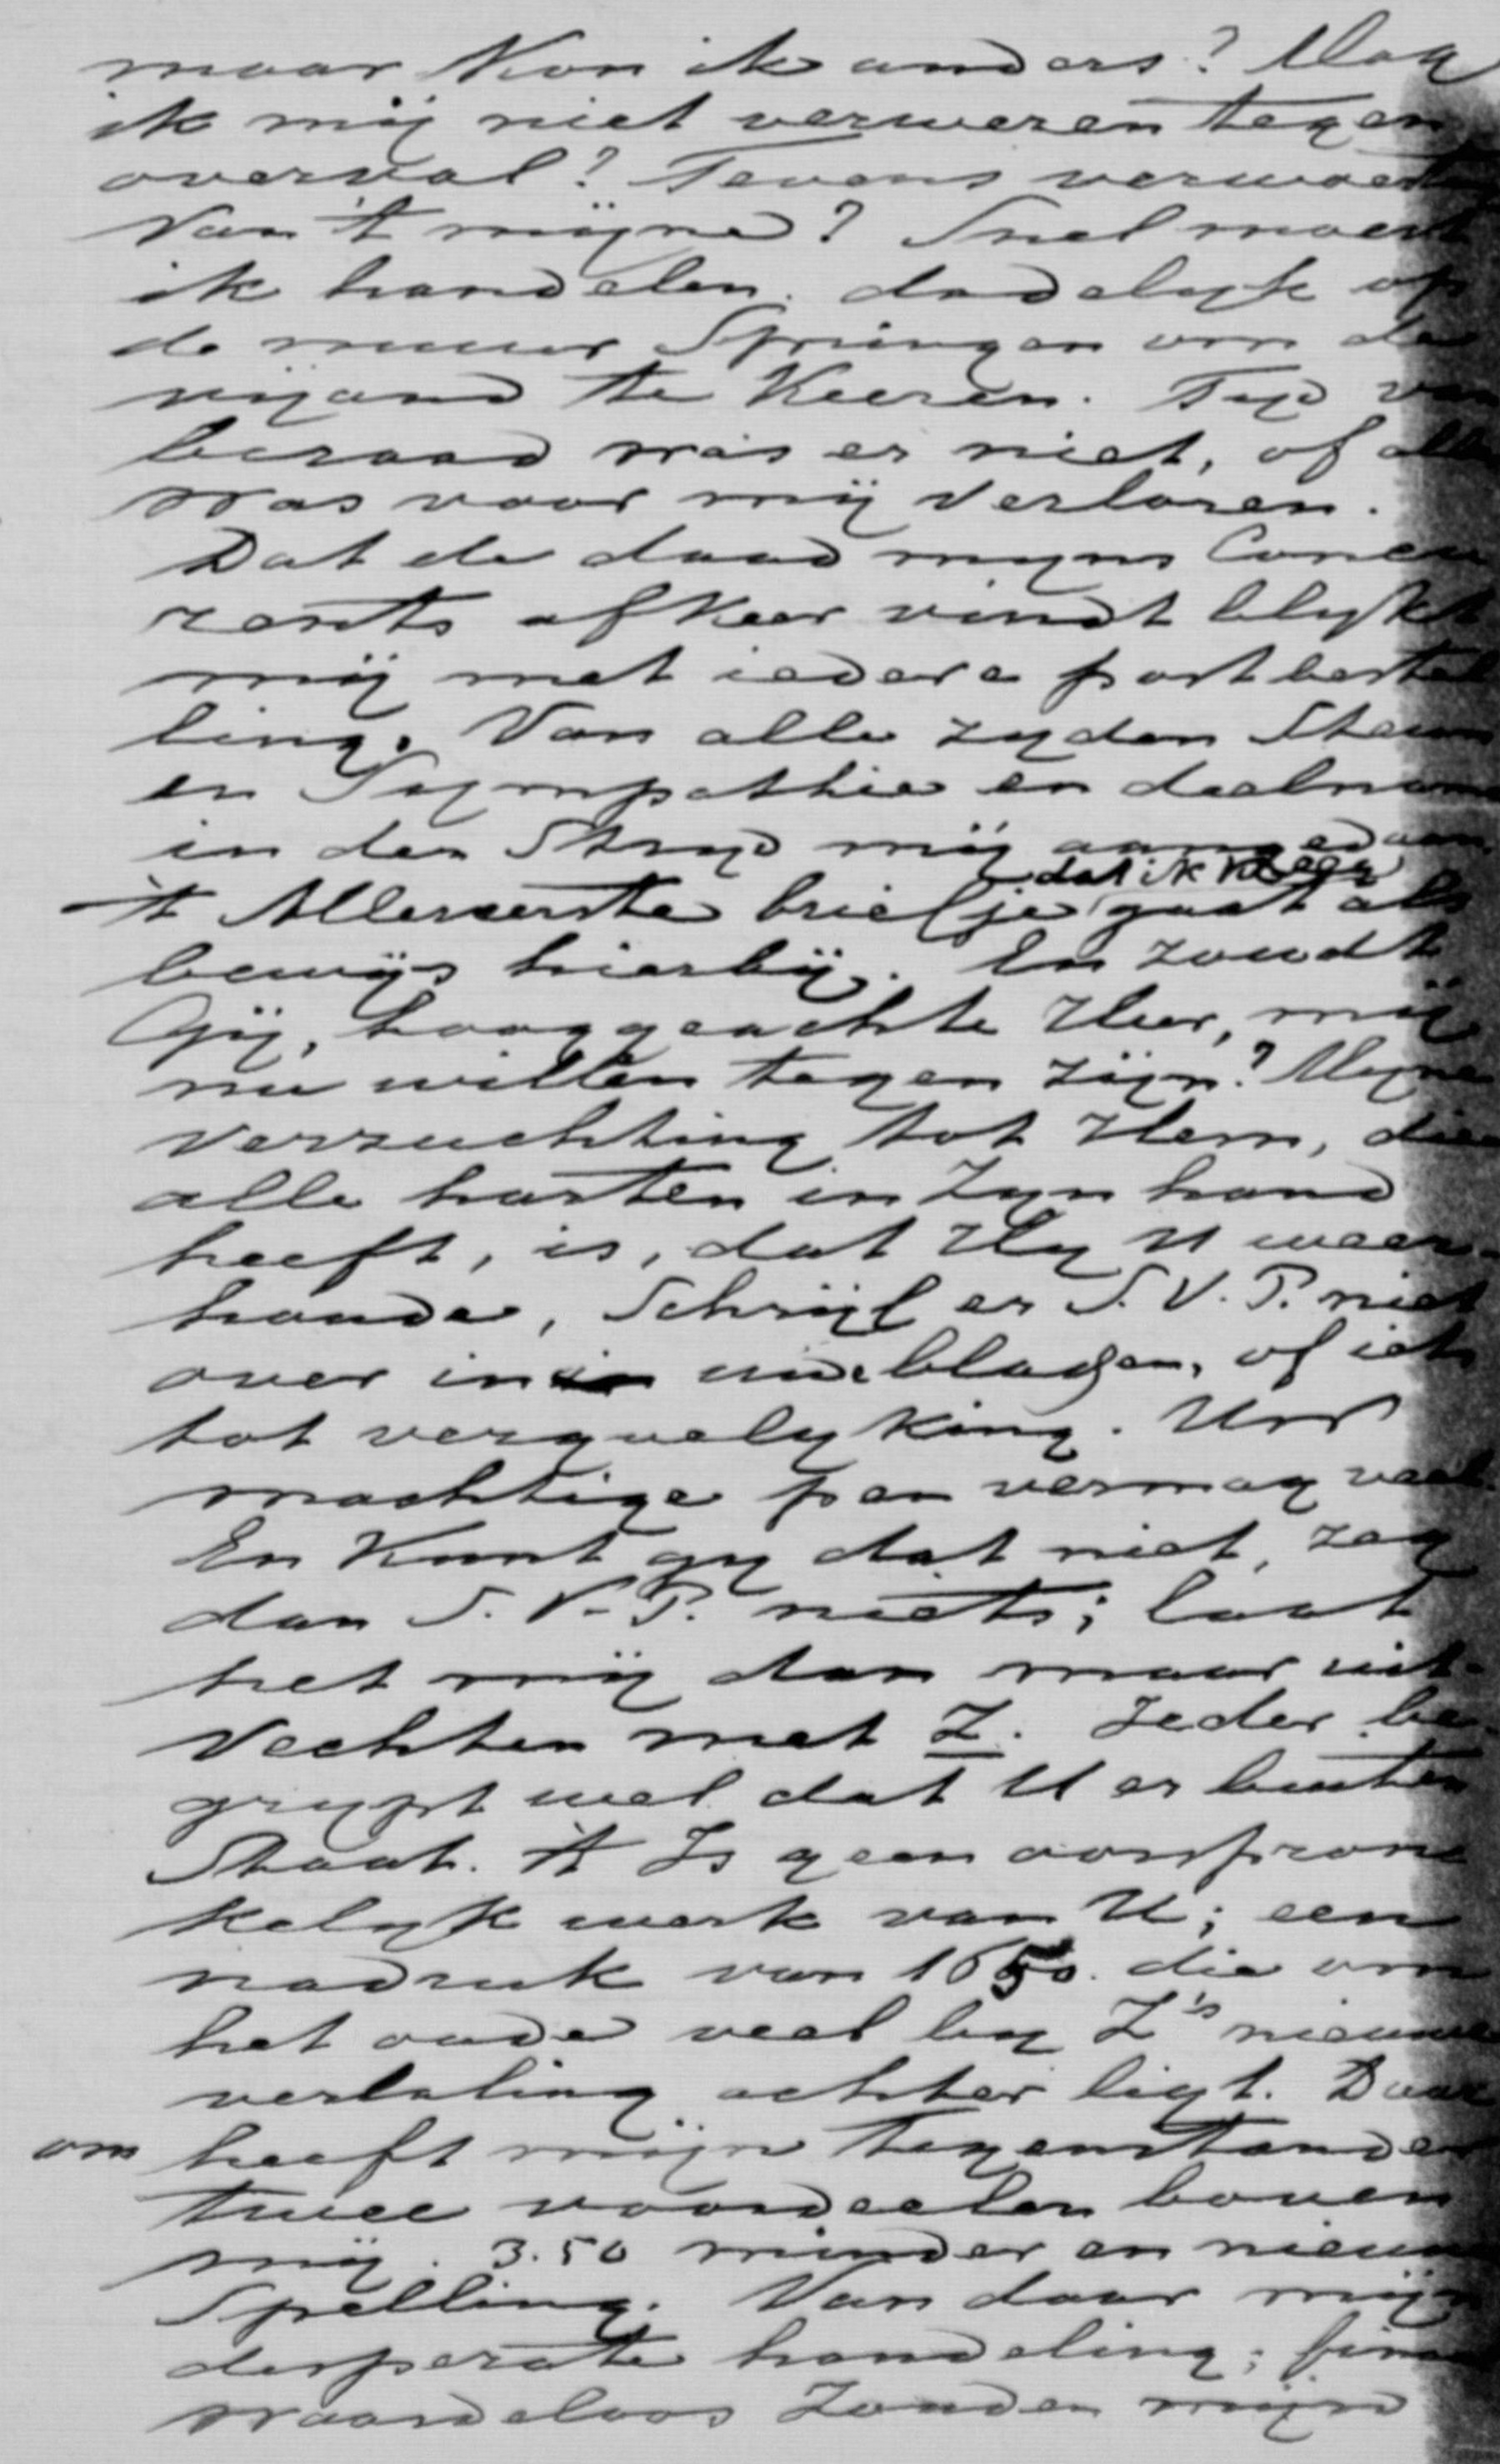 maar Kon ik anders? Mag
ik mij niet verweren tegen
overval? Tevens verwoest
Van 't mijne? Snel moest
ik handelen. dadelyk op
de muur Springen om de
vijand te Keeren. Tyd van
beraad was er niet, of alles
was voor mij verloren.
Dat de daad myns Concur
rents afkeer vindt blykt
mij met iedere postbestel
ling. Van alle zyden Steun
en Sympathie en deelname
in den Stryd mij aangedaan.
dat ik kreeg
't Allereerste briefje gaat als
bewijs hierbij. En zoudt
Gij, hooggeachte Heer, mij
nu willen tegen zijn? Myne
verzuchting tot Hem, die
alle harten in Zyn hand
heeft, is, dat Hy U weer-
houde, Schrijf er S.V.P. niet
over in uwe bladen, of iets
tot vergoelyking. Uw
machtige pen vermag veel.
En Kunt gy dat niet, zeg
dan S.V.P. niets; laat
het mij dan maar uit-
Vechten met Z. Ieder be-
grypt wel dat U er buiten
Staat. 't Is geen oorspron
kelyk werk van U; een
nadruk van 1650. die om
het oude veel by Z's nieuwe
vertaling achter ligt. Daar
om heeft mijn tegenstander
twee voordeelen boven
mij. 3.50 minder en nieuwe
Spelling. Van daar mijn
desperate handeling;
waardeloos Zouden mijne